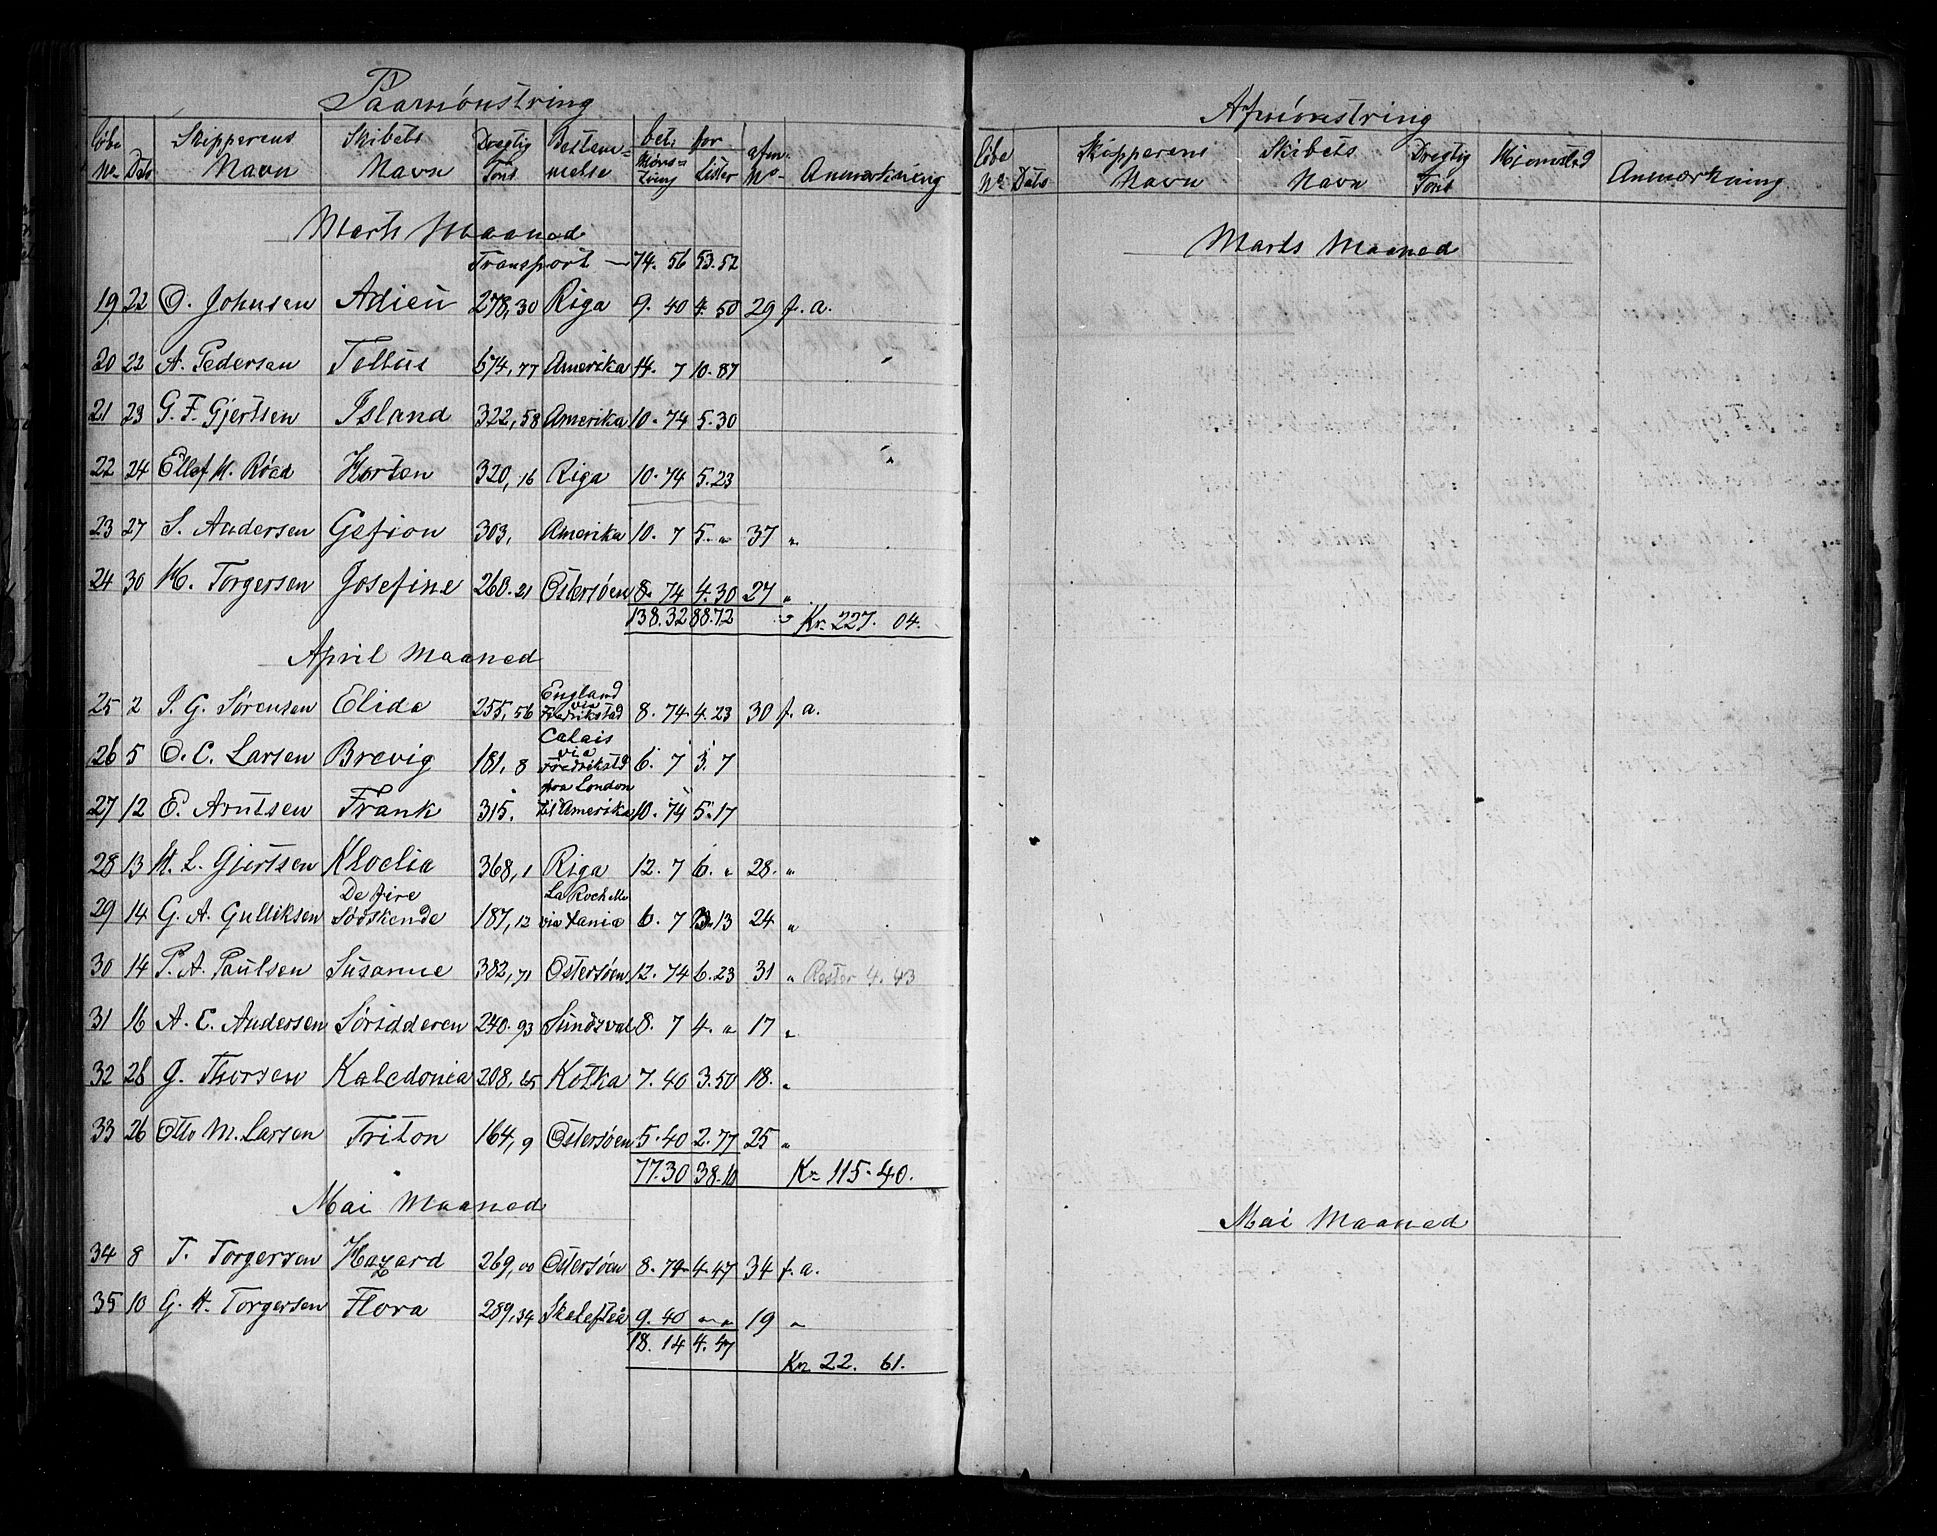 Paamönstring
Löbe No Dato Skipperens Navn Skibets Navn Drægtig Tons Bestemmelse bet. for Mönstring Lister afm. No Anmærkning
Marts Maaned
Transport — 74. 56 53. 52
19 22 O. Johnsen Adieu 278,30 Riga 9. 40 4. 50 29 f. a.
20 22 A. Pedersen Tellus 674,77 Amerika 14. 7 10. 87
21 23 G. F. Gjertsen Island 322,58 Amerika 10. 74 5. 30
22 24 Ellef H. Röed Horten 320,16 Riga 10. 74 5. 23
23 27 S. Andersen Gefion 303, Amerika 10. 7 5. " 37 "
24 30 H. Torgersen Josefine 260. 21 Östersöen 8. 74 4. 30 27 "
138. 32 88. 72 Kr. 227. 04.
April Maaned
25 2 P. G. Sörensen Elida 255,56 England via Fredrikstad 8. 74 4. 23 30 f. a.
26 5 O. C. Larsen Brevig 181,8 Calais via Fredrikstd 6. 7 3. 7
27 12 E. Arntsen Frank 315. fra London til Amerika 10. 74 5. 17
28 13 H. L. Gjertsen Kloelia 368,1 Riga 12. 7 6. " 28. "
29 14 G. A. Gulliksen De fire Södskende 187,12 La Rochelle via 6. 7 3. 13 24 "
30 14 P. A. Paulsen Susanne 382,71 Östersöen 12. 74 6. 23 31 " Rester 4. 43
31 16 A. C. Andersen Söridderen 240. 93 Sundsval 8. 7 4. " 17 "
32 26 G. Thorsen Kaledonia 208,65 Kotka 7. 40 3. 50 18. "
33 26 Otto M. Larsen Triton 164,9 Östersöen 5. 40 2. 77 25 "
77. 30 38. 10 Kr. 115. 40.
Mai Maaned
34 8 T. Torgersen Hazard 269,00 Östersöen 8. 74 4. 47 34 f. a.
35 10 G. H. Torgersen Flora 289,34 Skelefteå 9. 40 " " 19 "
18. 14 4. 47
Kr. 22. 61.
Afmönstring
Löbe No Dato Skipperens Navn Skibets Navn Drægtig Tons Hjemsted Anmærkning
Marts Maaned
Mai Maaned